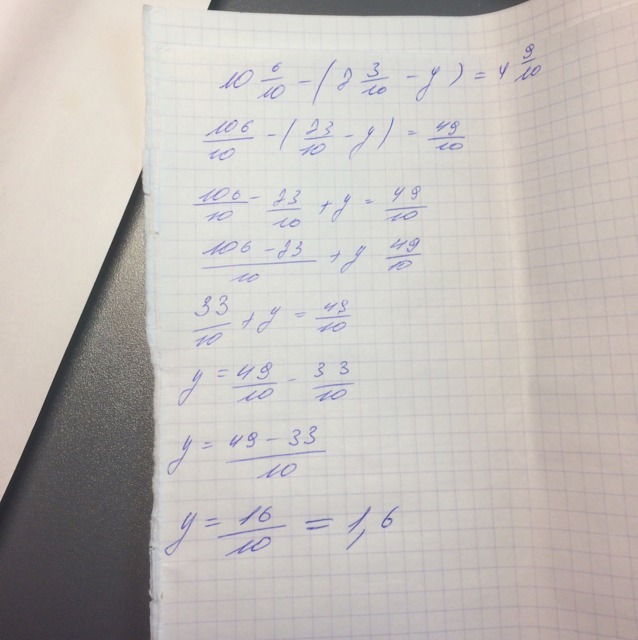 10 6/10 - ( 7 3/10 - y ) = 4 9/10
106/10 - ( 73/10 - y ) = 49/10
106/10 - 73/10 + y = 49/10
106 - 73/10 + y 49/10
33/10 + y = 49/10
y = 49/10 - 33/10
y = 49 - 33/10
y = 16/10 = 1,6